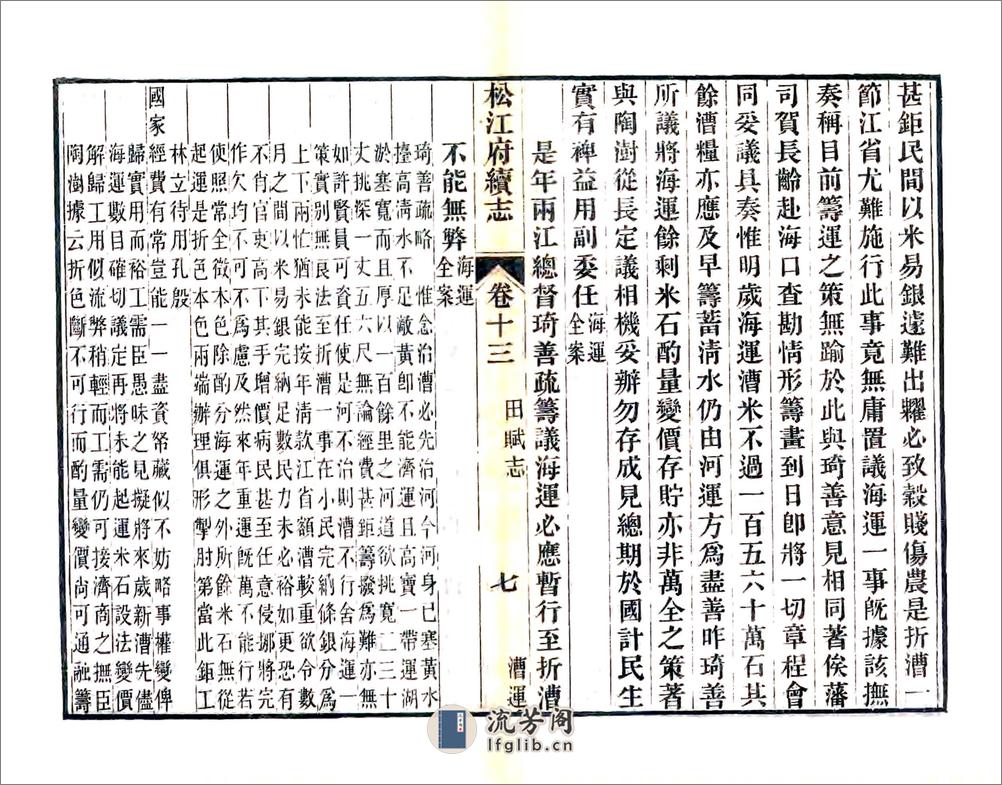 甚鉅民間以米易銀遠難出糶必致穀賤傷農是折漕一
節江省尤難施行此事竟無庸置議海運一事旣據該撫
奏稱目前籌運之策無踰於此與琦善意見相同著俟藩
司賀長齡赴海口查勘情形籌畫到日卽將一切章程會
同妥議具奏惟明歲海運漕米不過一百五六十萬石其
餘漕糧亦應及早籌蓄淸水仍由河運方爲盡善昨琦善
所議將海運餘剩米石酌量變價存貯亦非萬全之策著
與陶澍從長定議相機妥辦勿存成見總期於國計民生
實有裨益用副委任海運全案
是年兩江總督琦善疏籌議海運必應暫行至折漕
松江府續志
卷十三
田賦志
七
漕運
不能無弊海運全案
琦善疏略惟念治漕必先治河今河身已塞黃水
擡高淸水不足敵黃卽不能濟運且高寶一帶運湖
淤塞寬而且厚以一百餘里之河道欲挑寬二三十
丈挑深一丈五六尺無論經費甚鉅籌撥爲難亦無
如許賢員可資任使是河不治則漕不行舍海運一
策實別無良法至折漕一事在小民完納條銀分爲
上下兩忙猶未能按年淸款江省額漕較重欲令數
月之間以米易銀完納足數民力未必裕如更恐有
不肖官吏高下其手增價病民甚至任意侵挪將完
作欠均不可不爲慮及然來年重運旣萬不能行若
使照常全徵本色除酌分海運之外所餘米石無從
起運是折色本色兩端辦理俱形掣肘第當此鉅工
林立待用孔殷
國家
經費有常豈能一一盡資帑藏似不妨略事權變俾
歸實用而裕工需臣愚昧之見擬將來歲新漕先儘
海運數目確切議定再將未能起運米石設法變價
解歸工用似流弊稍輕而工需仍可接濟商之撫臣
陶澍據云折色斷不可行而酌量變價尚可通融籌
流芳阁
lfglib.cn